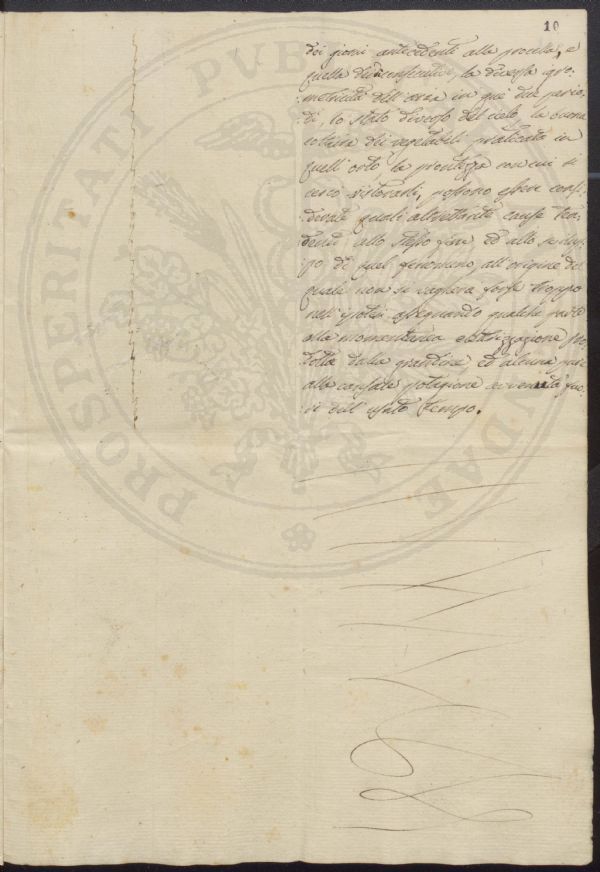 10
dei giorni antecedenti alla procella, e
quella dei conseguenti, la diversa igro-
metricità dell'aria in que' due perio-
di, lo stato diverso del cielo, la buona
coltura dei vegetabili praticata in
quell'orto, la prontezza con cui si
cercò ristorarli, possono essere consi-
derate quali altrettante cause ten-
denti allo stesso fine, ed allo svilup-
po di quel fenomeno, all'origine del
quale non si vagherà forse troppo
nell'ipotesi assegnando qualche parte
alla momentanea elettrizzazione pro-
dotta dalla grandine, ed alcuna pure
alla potagione avvenuta fuo-
ri dell'usato tempo.
PROSPERITATI PVBLICAE AVGENDAE